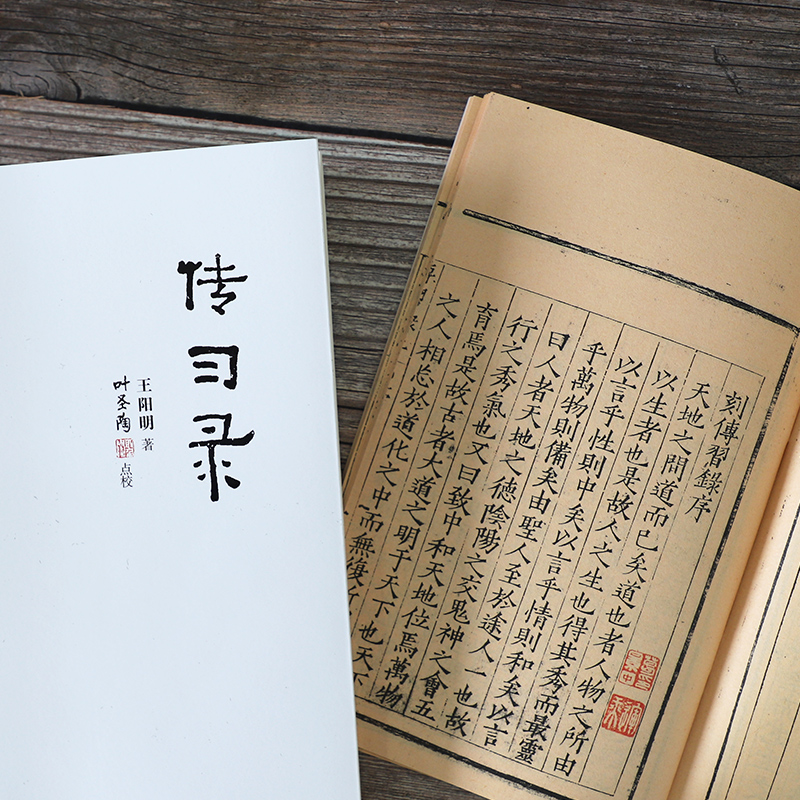 传习录
王阳明 著
叶圣陶 点校
刻傳習錄序
天地之間道而已矣道也者人物之所由
以生者也是故人之生也得其秀而最靈
以言乎性則中矣以言乎情則和矣以言
乎萬物則備矣由聖人至於途人一也故
曰人者天地之德陰陽之交鬼神之會五
行之秀氣也又曰致中和天地位焉萬物
育焉是故古者大道之明于天下也天下
之人相忘於道化之中而無復所